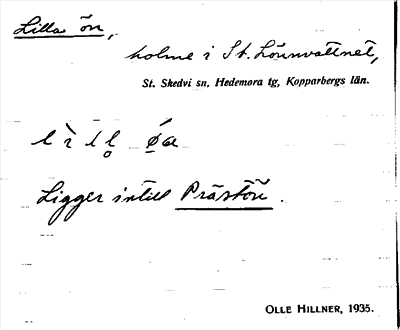 Lilla ön,
holme i St. Lönnvattnet,
St. Skedvi sn, Hedemora tg, Kopparbergs län.
Ligger intill Prästön.
OLLE HILLNER, 1935.